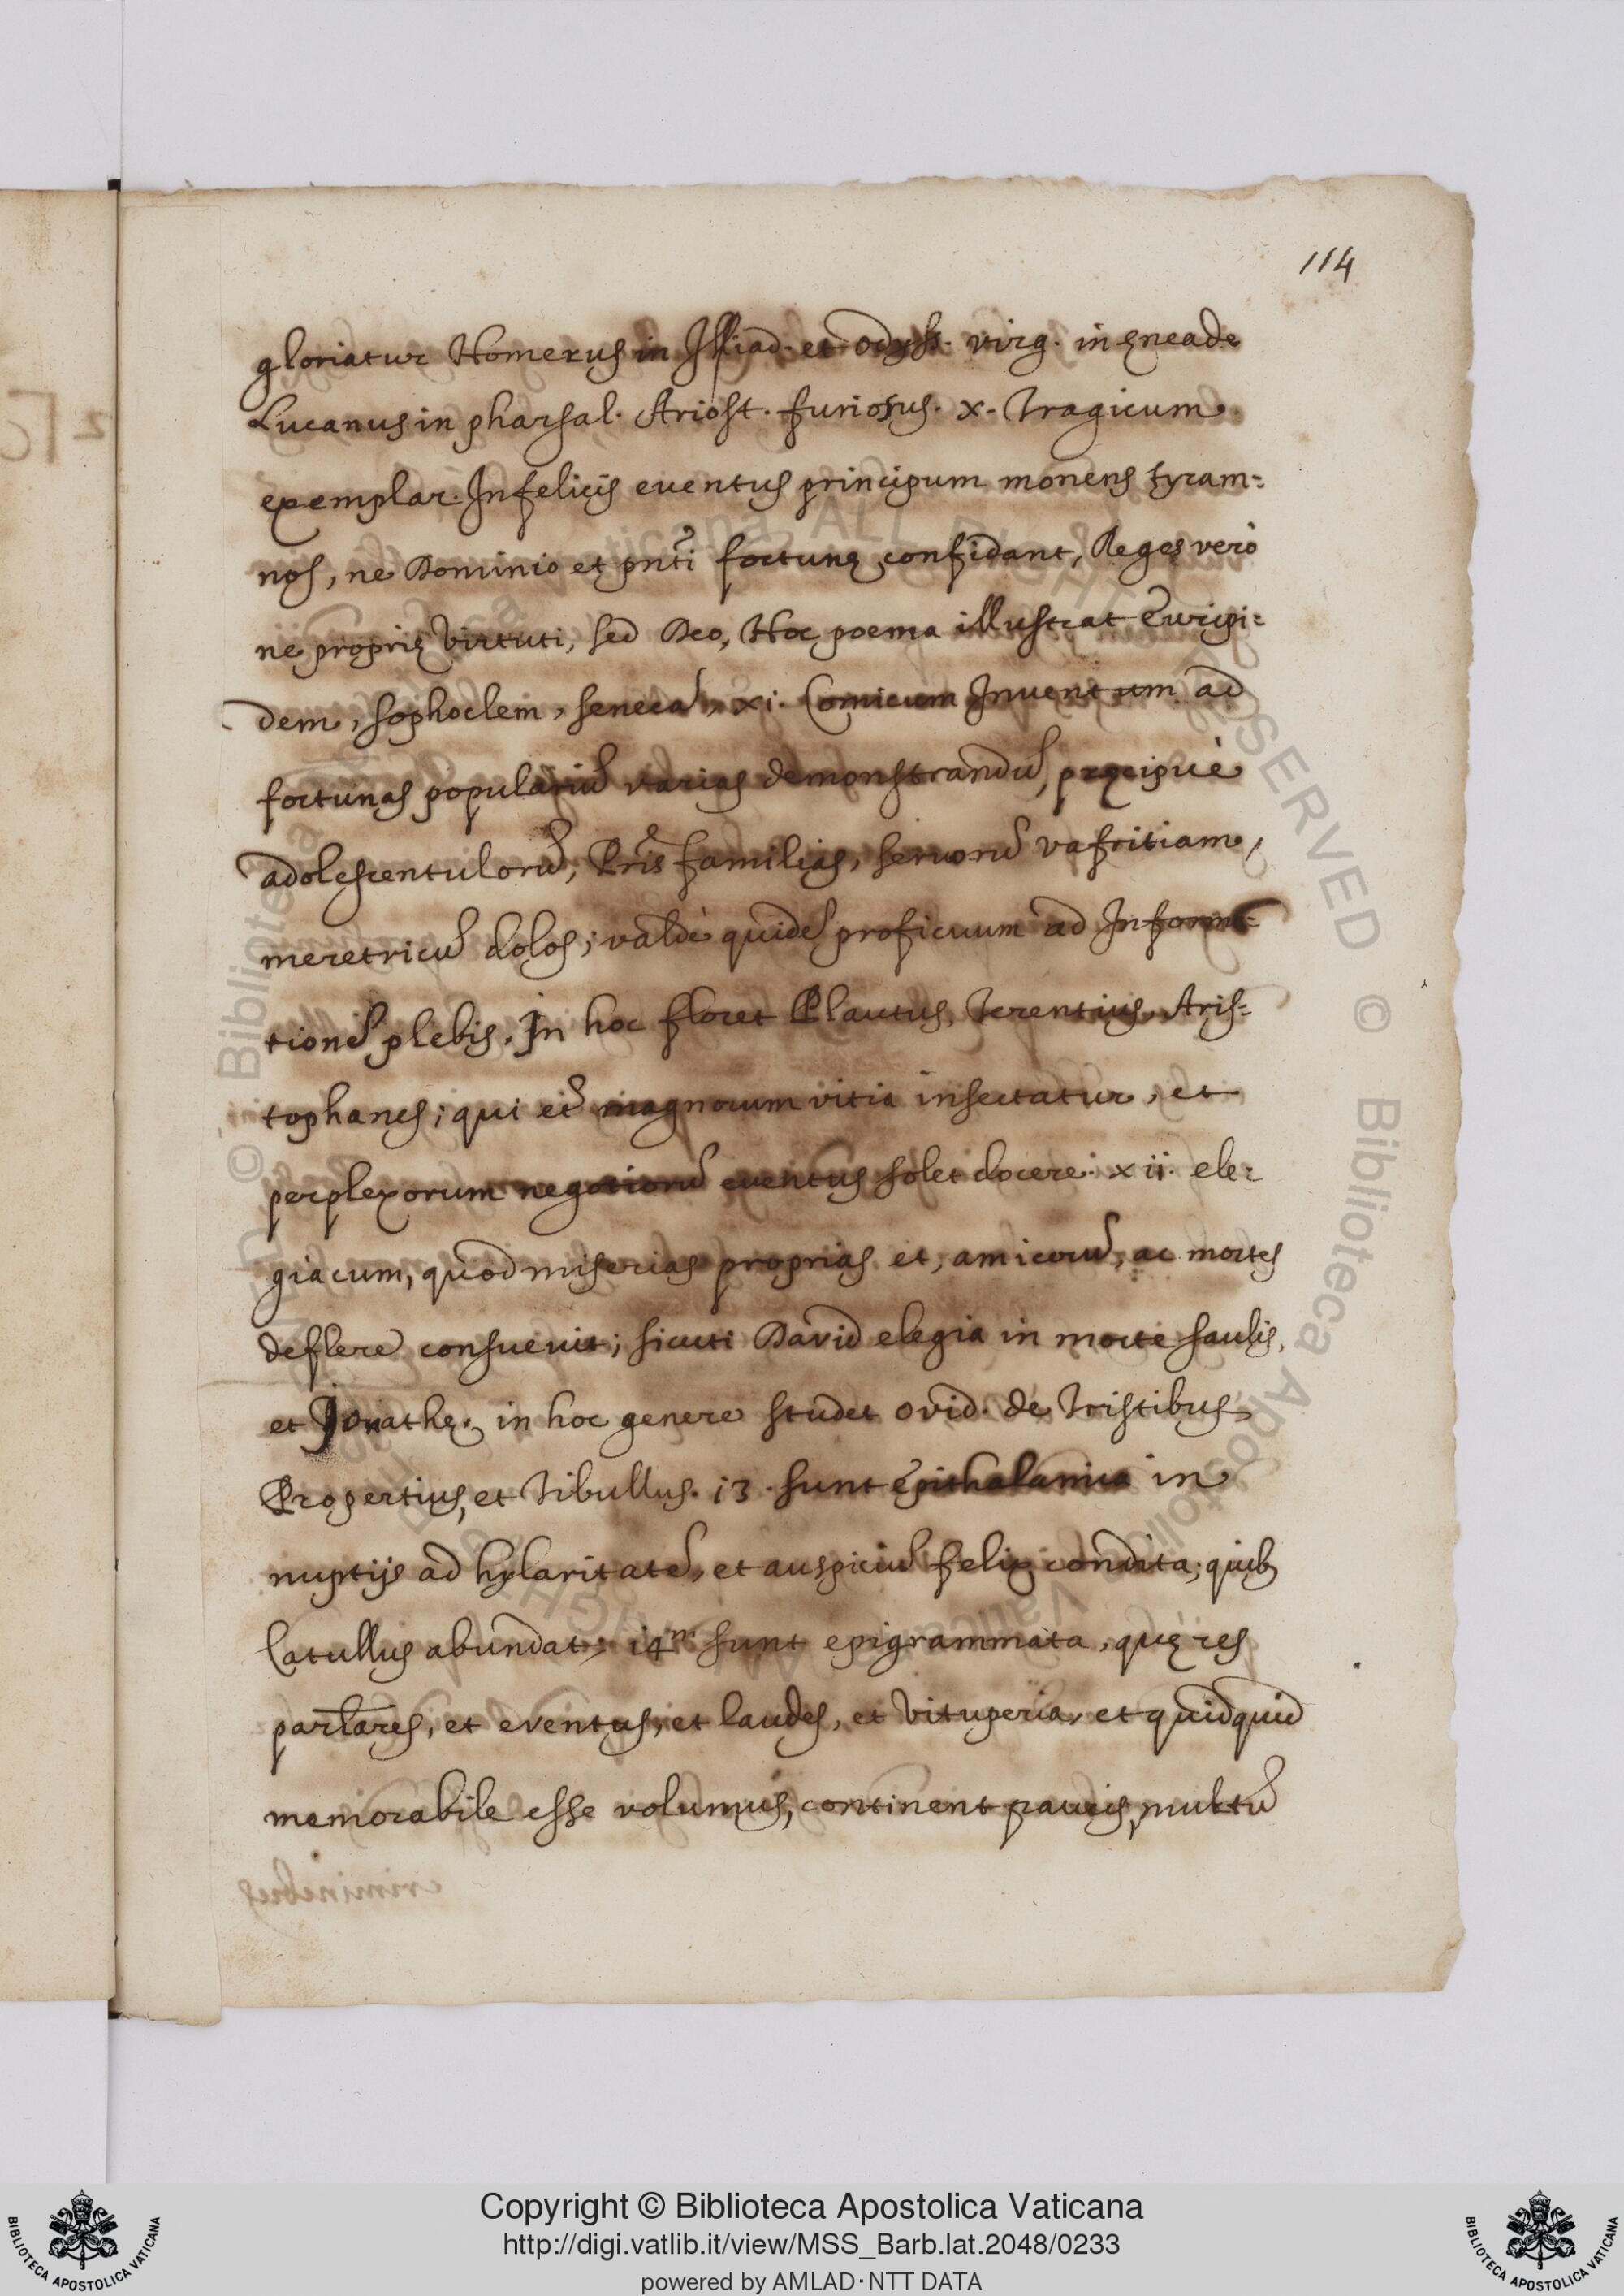 114
gloriatur Homerus in Illiad. et odyss. virg. in ęneade
Lucanus in pharsal. Ariost. furiosus. x. Tragicum
exemplar. Infelicis eventus principum monens tyram=
nos, ne Dominio et pnt̃i fortunę confidant, Reges verò
ne proprię virtuti, sed Deo, Hoc poema illustrat Euripi=
dem, sophoclem, senecā, xi. Comicum Inventum ad
fortunas populariū varias demonstrandū, pręcipuè
adolescentulorū, Pr̃is familias, servorū vafritiam,
meretricū dolos; valdè quidē proficuum ad Informa=
tionē plebis. In hoc floret Plautus, Terentius, Aris=
tophanes; qui et̃ magnorum vitia insectatur, et
perplexorum negotiorū eventus solet docere. xii. ele=
giacum, quod miserias proprias et, amicorū, ac mortes
deflere consuevit; sicuti David elegia in morte saulis,
et Jonathę. in hoc genere studet ovid. de Tristibus
Propertius, et Tibullus. 13. sunt epithalamia in
nuptijs ad hylaritatē, et auspiciū felix condita; quib
Catullus abundat; 14m. sunt epigrammata, quę res
part̃lares, et eventus, et laudes, et vituperia, et quidquid
memorabile esse volumus, continent paucis, multū
criminebus
Copyright © Biblioteca Apostolica Vaticana
http://digi.vatlib.it/view/MSS_Barb.lat.2048/0233
powered by AMLAD·NTT DATA
BIBLIOTECA APOSTOLICA VATICANA
BIBLIOTECA APOSTOLICA VATICANA